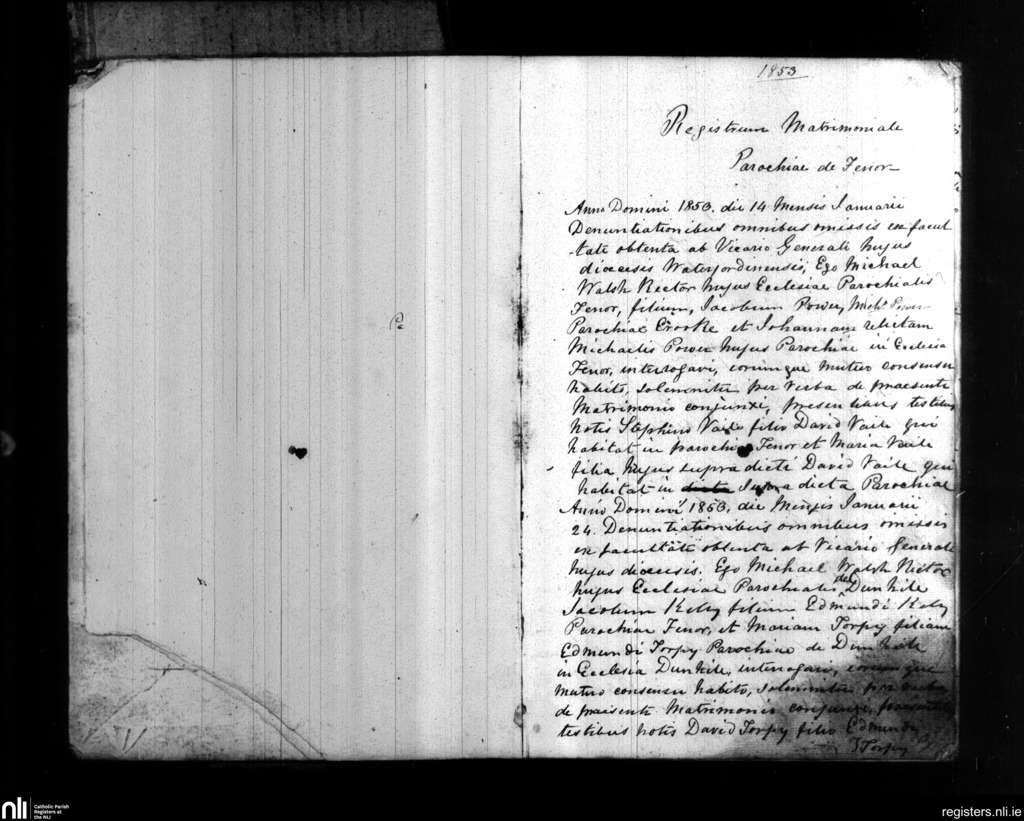 1853
Registrum Matrimoniale
Parochiae de Fenor
Anno Domini 1853, die 14 Mensis Januarii
Denuntiationibus omnibus omissis ex facul
-tate obtenta ab Vicario Generali hujus
diocesis Waterfordinensis, Ego Michael
Walsh Rector hujus Ecclesiae Parochialis
Fenor, filium, Jacobum Power, Michl. Power
Parochiae Crooke et Johannam relictam
Michaelis Power hujus Parochiae in Ecclesia
Fenor, interrogavi, eorumque mutuo consensu
habito, solemniter per verba de praesente
Matrimonio conjunxi, presentibus testibus
notis Stephino Vaile filio David Vaile qui
habitat in parochiae Fenor et Maria Vaile
filia hujus supra dicti David Vaile qui
habitat in supra dicta Parochiae
Anno Domini 1853, die Mensis Januarii
24. Denuntiationibus omnibus omissis
ex facultate obtenta ab Vicario Generali
hujus diocesis. Ego Michael Walsh Rector
hujus Ecclesiae Parochialis de Dunhile
Jacobum Kely filium Edmundi Kely
Parochiae Fenor, et Mariam Torpy filiam
Edmundi Torpy Parochiae de Dunhile
in Ecclesia Dunhile, interrogavi, eorumque
mutuo consensu habito, solemniter per verba
de praesente Matrimonio conjunxi, presentibus
testibus notis David Torpy filio Edmundi
Torpy
Pc
nli
Catholic Parish
Registers at
the NLI
registers.nli.ie